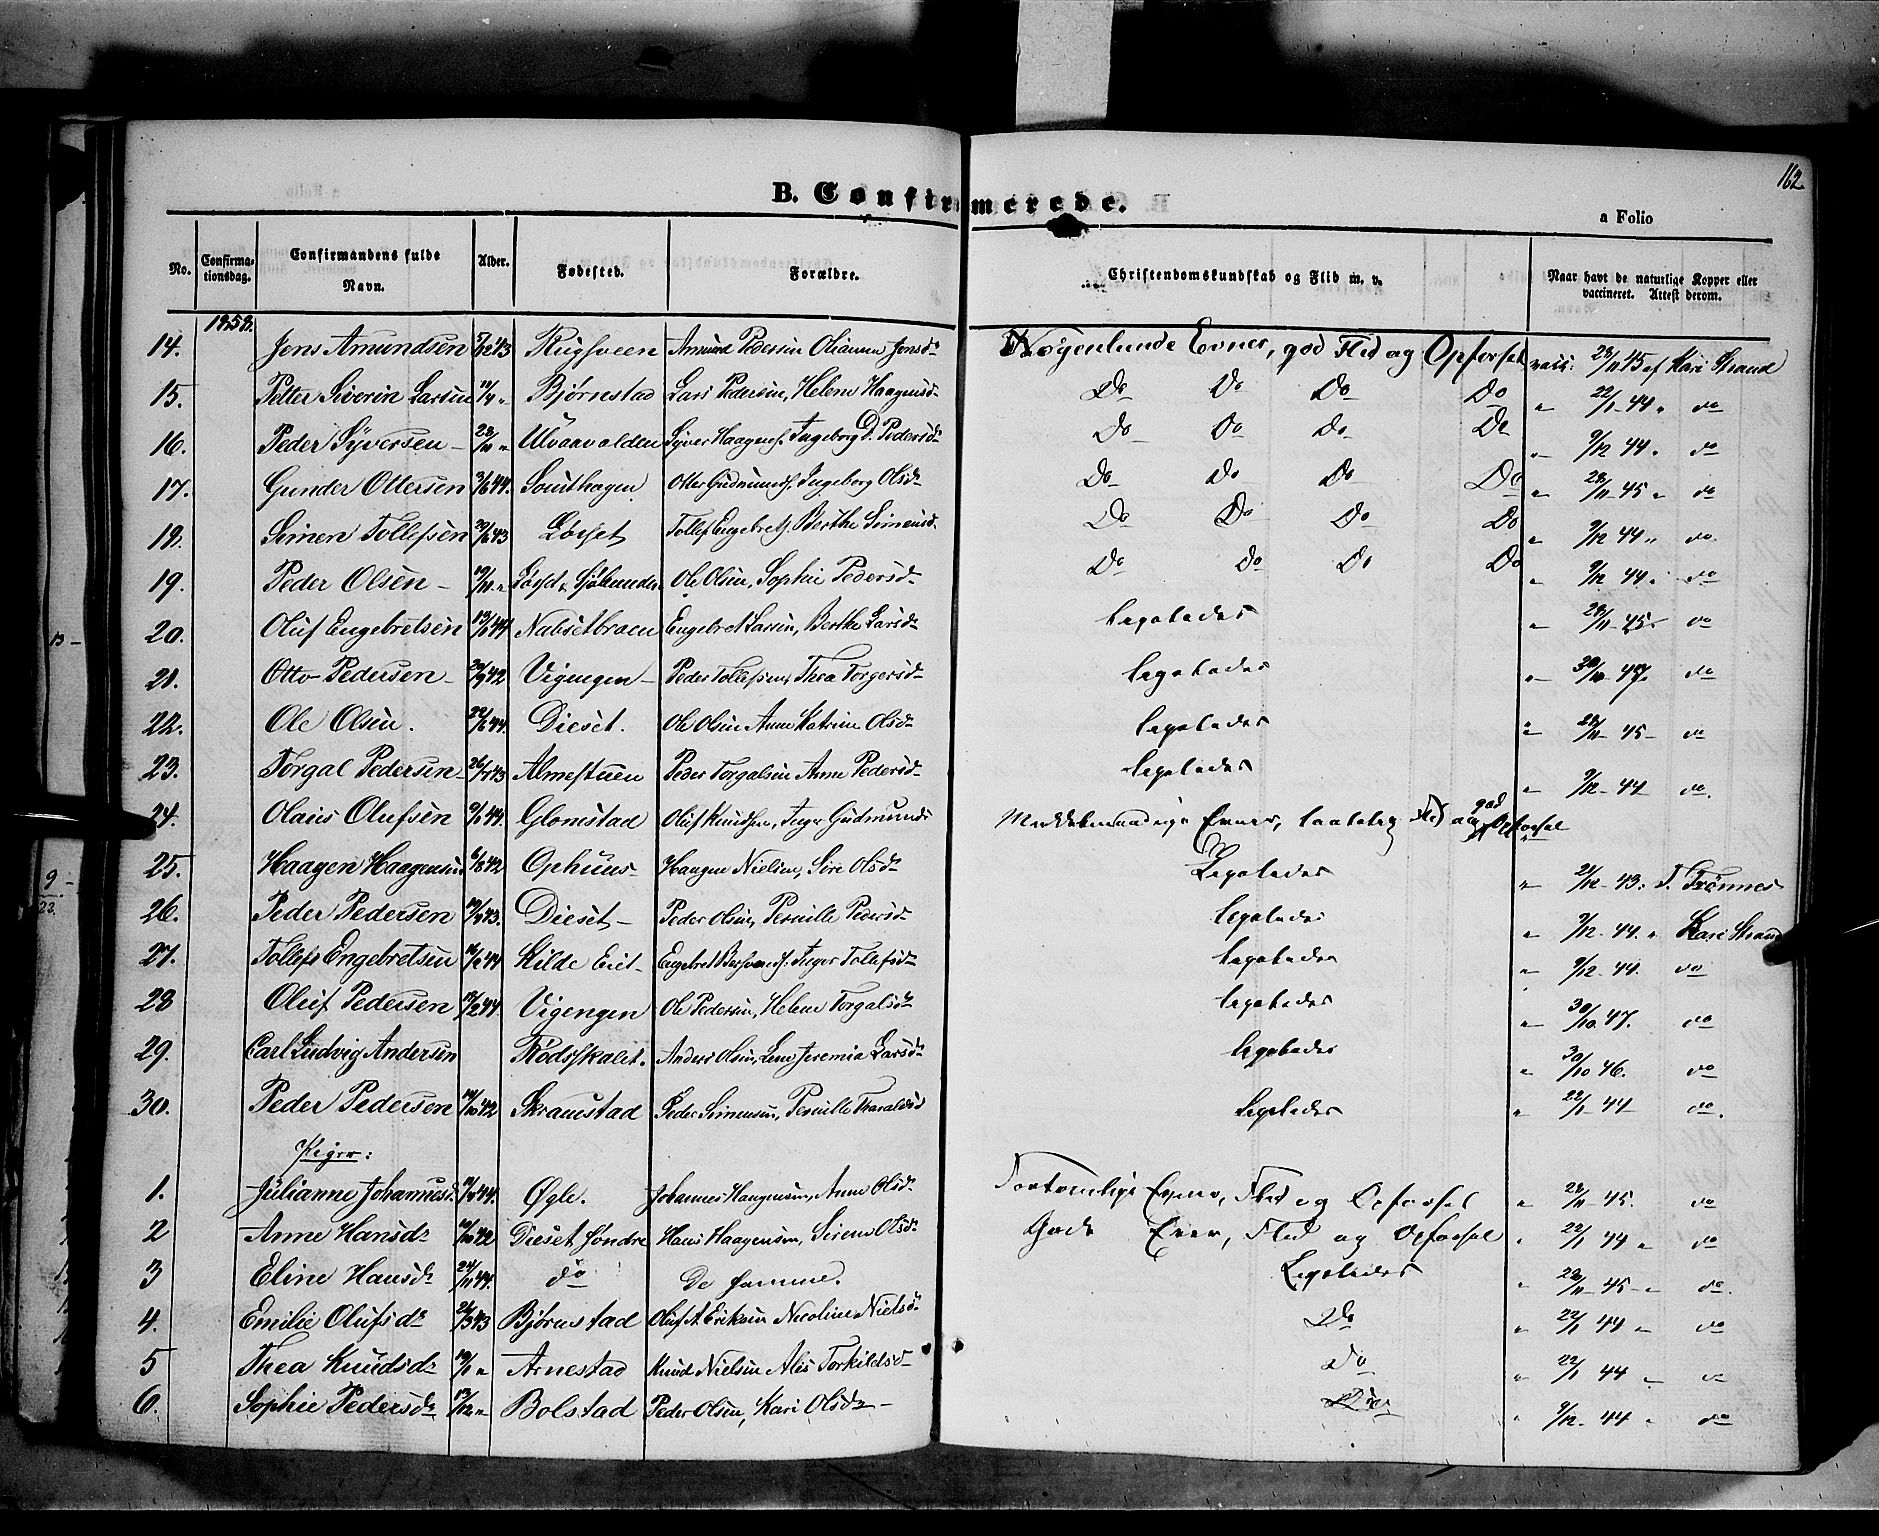 162.
B. Confirmerede.
a Folio
No. Confirmationsdag. Confirmandens fulde Navn. Alder. Fødested. Forældre. Christendomskundskab og Flid m. v. Naar havt de naturlige Kopper eller vaccineret. Attest derom.
1858.
14. Jens Amundsen 7/12 43 Rugsveen Amund Pedersen Olianne Jensdr Nogenlunde Evner, god Flid og Opførsel vacc: 28/11 45 af Kari Strand
15. Petter Siverin Larsen Bjørnstad Lars Pedersen, Helene Haagensdr Do Do Do Do " 22/1 44 " do
16. Peder Syversen 28/11 " Ulvaavolden Syver Haagens. Ingebrig D. Pedersdr Do Do Do Do " 9/12 44 " do
17. Gunder Ottersen 3/6 44. Southagen Otter Gudmunds. Ingeborg Olsdr Do Do Do Do " 28/11 45 " do
18. Simen Tollefsen 20/6 43 Løset Tollef Engebrets. Berthe Simensd. Do Do Do Do " 9/12 44 " do.
19. Peder Olsen 19/11 " Ole Olsen, Sophie Pedersdr Do Do Do Do " 9/12 44 " do
20. Oluf Engebretsen 44 Nabsetbraen Engebret Larsen, Berthe Larsdr Ligeledes " 28/11 45 do
21. Otto Pedersen 42 Vigengen Peder Tollefsen, Thea Torgersdr ligeledes " 30/10 47. do
22. Ole Olsen. 44. Dieset. Ole Olsen Anne Katrine Olsdr ligeledes " 28/11 45 do
23. Torgal Pedersen 43 Almestuen Peder Torgalsen Anne Pedersdr ligeledes " 9/12 44 do.
24. Olaus Olufsen 9/1 44. Glomstad Oluf Knudsen, Inger Gudmunds Middelmaadige Evner, taalelig Flid og god Opførsel
25. Haagen Haagensen 6/8 42 Ophuus Haagen Nielsen, Sire Olsdr Ligeledes " 2/12 43. T. Trønnes
26. Peder Pedersen 43. Dieset Peder Olsen, Pernille Pedersdr ligeledes " 9/12 44. " Kari Strand
27. Tollef Engebretsen 44 Kilde Eiet Engebret Inger Tollefsdr ligeledes " 9/12 44. do
28 Oluf Pedersen 44 Vigengen Ole Pedersen, Helene Torgalsdr ligeledes " 30/10 47. do
29. Carl Ludvig Andersen Anders Olsen, Lene Jeremia Larsdr ligeledes " 30/10 46. do
30. Peder Pedersen 42 Skramstad Peder Simensen, Pernille Tharaldsd ligeledes " 22/1 44 do.
Piger:
1. Julianne Johannesd. 44. Øgle. Johannes Haagensen, Anne Olsdr Fortrinlige Evner, Flid og Opførsel " 28/11 45. do
2 Anne Hansdr 42 Dieset Søndre Hans Haagensen, Sirene Olsdr Gode Evner, Flid og Opførsel " 22/1 44 " do
3 Eline Hansdr 24/11 44. do De samme. Ligeledes " 28/11 45 " do.
4. Emilie Olufsdr 43 Bjørnstad Oluf A. Eriksen Nicoline Nielsdr Do " 22/1 44 " do
5 Thea Knudsdr 19/1 " Arnestad Knud Nielsen Alis Torkildsdr Do " 22/1 44 "
6. Sophie Pedersdr 13/12 " Bolstad Peder Olsen, Kari Olsdr Do " 9/12 44 " do